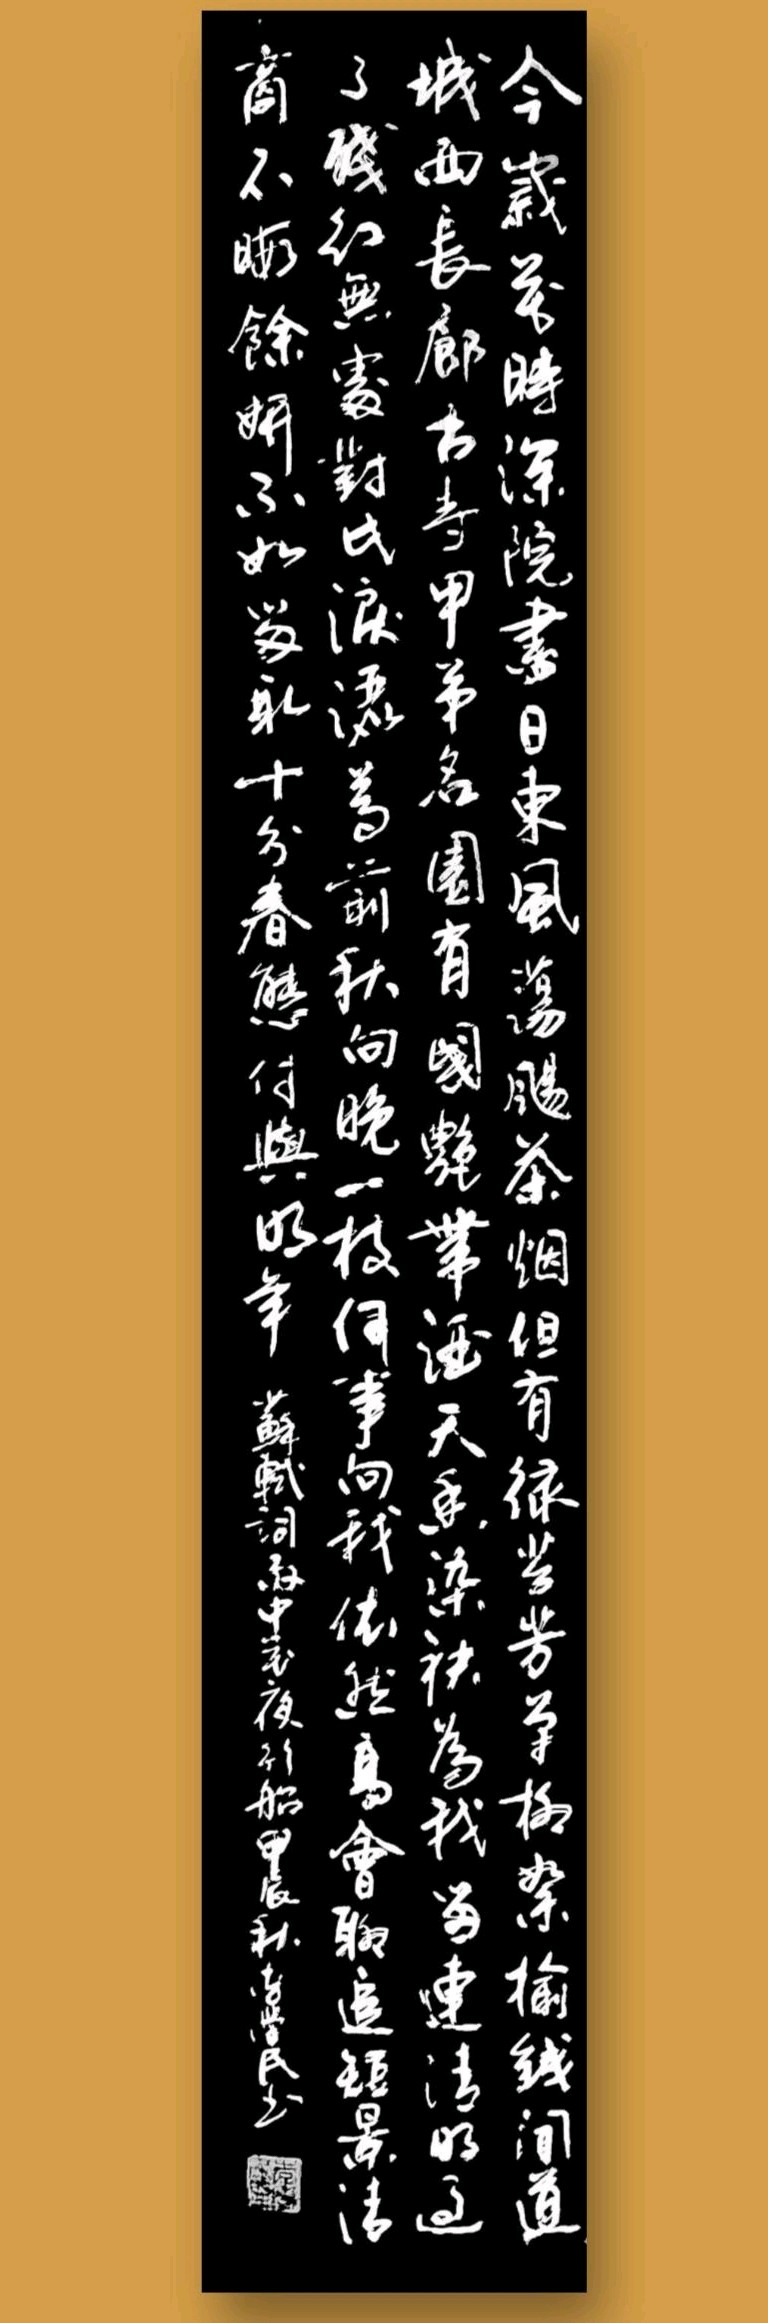 今歲花時深院盡日東風蕩颺茶烟但有綠苔芳草柳絮榆錢聞道
城西長廊古寺甲第名園有國艷帶酒天香染袂為我留連清明過
了殘紅無處對此淚灑尊前秋向晚一枝何事向我依然高會聊追短景清
商不暇餘妍不如留取十分春態付與明年 蘇軾詞雨中花夜行船甲辰秋李學民书